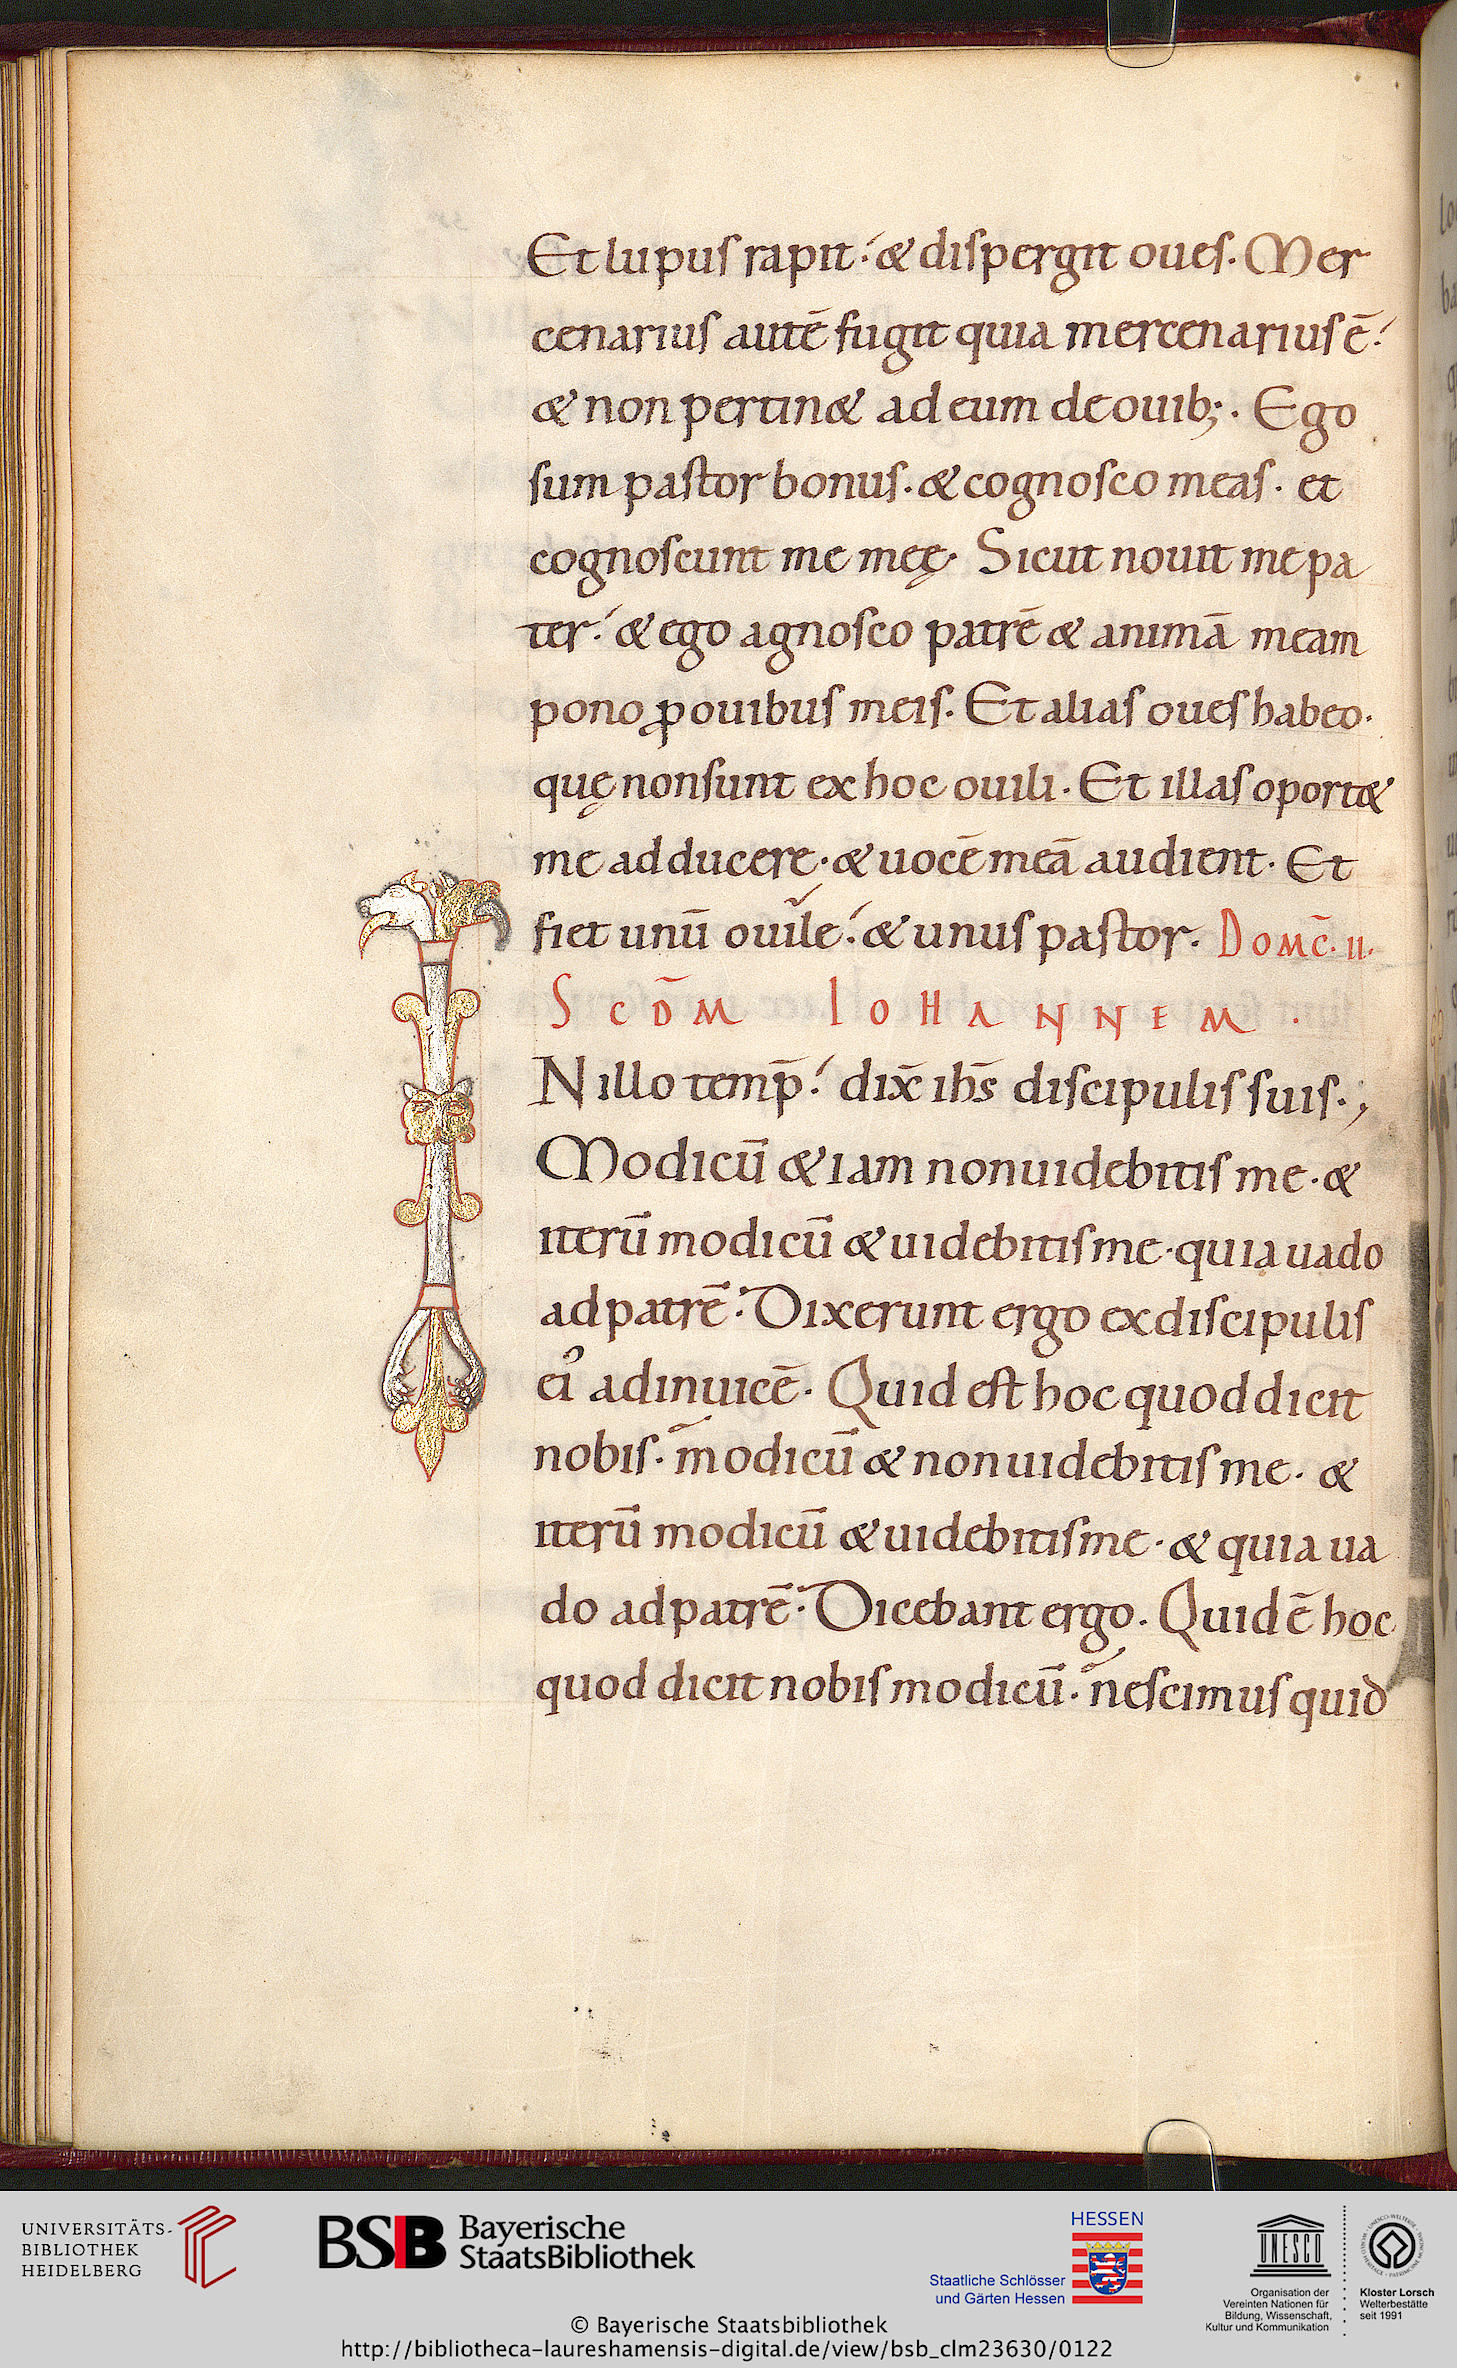 Et lupus rapit. & dispergit oues. Mer
cenarius autē fugit quia mercenarius ē.
& non pertin& ad eum de ouib;. Ego
sum pastor bonus. & cognosco meas. et
cognoscunt me meę. Sicut nouit me pa
ter. & ego agnosco patrē & animā meam
pono ꝓ ouibus meis. Et alias oues habeo.
quę non sunt ex hoc ouili. Et illas oport&
me adducere. & uocē meā audient. Et
fiet unū ouile. & unus pastor. Domc̄. II.
Scdm̄ Iohannem.
IN illo temp̄. dix̄ ih̄s discipulis suis.,
Modicū & iam non uidebitis me. &
iterū modicū & uidebitis me. quia uado
ad patrē. Dixerunt ergo ex discipulis
ei᾿ adinuicē. Quid est hoc quod dicit
nobis. modicū & non uidebitis me. &
iterū modicū & uidebitis me. & quia ua
do ad patrē. Dicebant ergo. Quid ē hoc
quod dicit nobis modicū. nescimus quid
UNIVERSITÄTS-
BIBLIOTHEK
HEIDELBERG
BSB Bayerische
StaatsBibliothek
HESSEN
Staatliche Schlösser
und Gärten Hessen
UNESCO
Organisation der
Vereinten Nationen für
Bildung, Wissenschaft,
Kultur und Kommunikation
Kloster Lorsch
Welterbestätte
seit 1991
© Bayerische Staatsbibliothek
http://bibliotheca-laureshamensis-digital.de/view/bsb_clm23630/0122